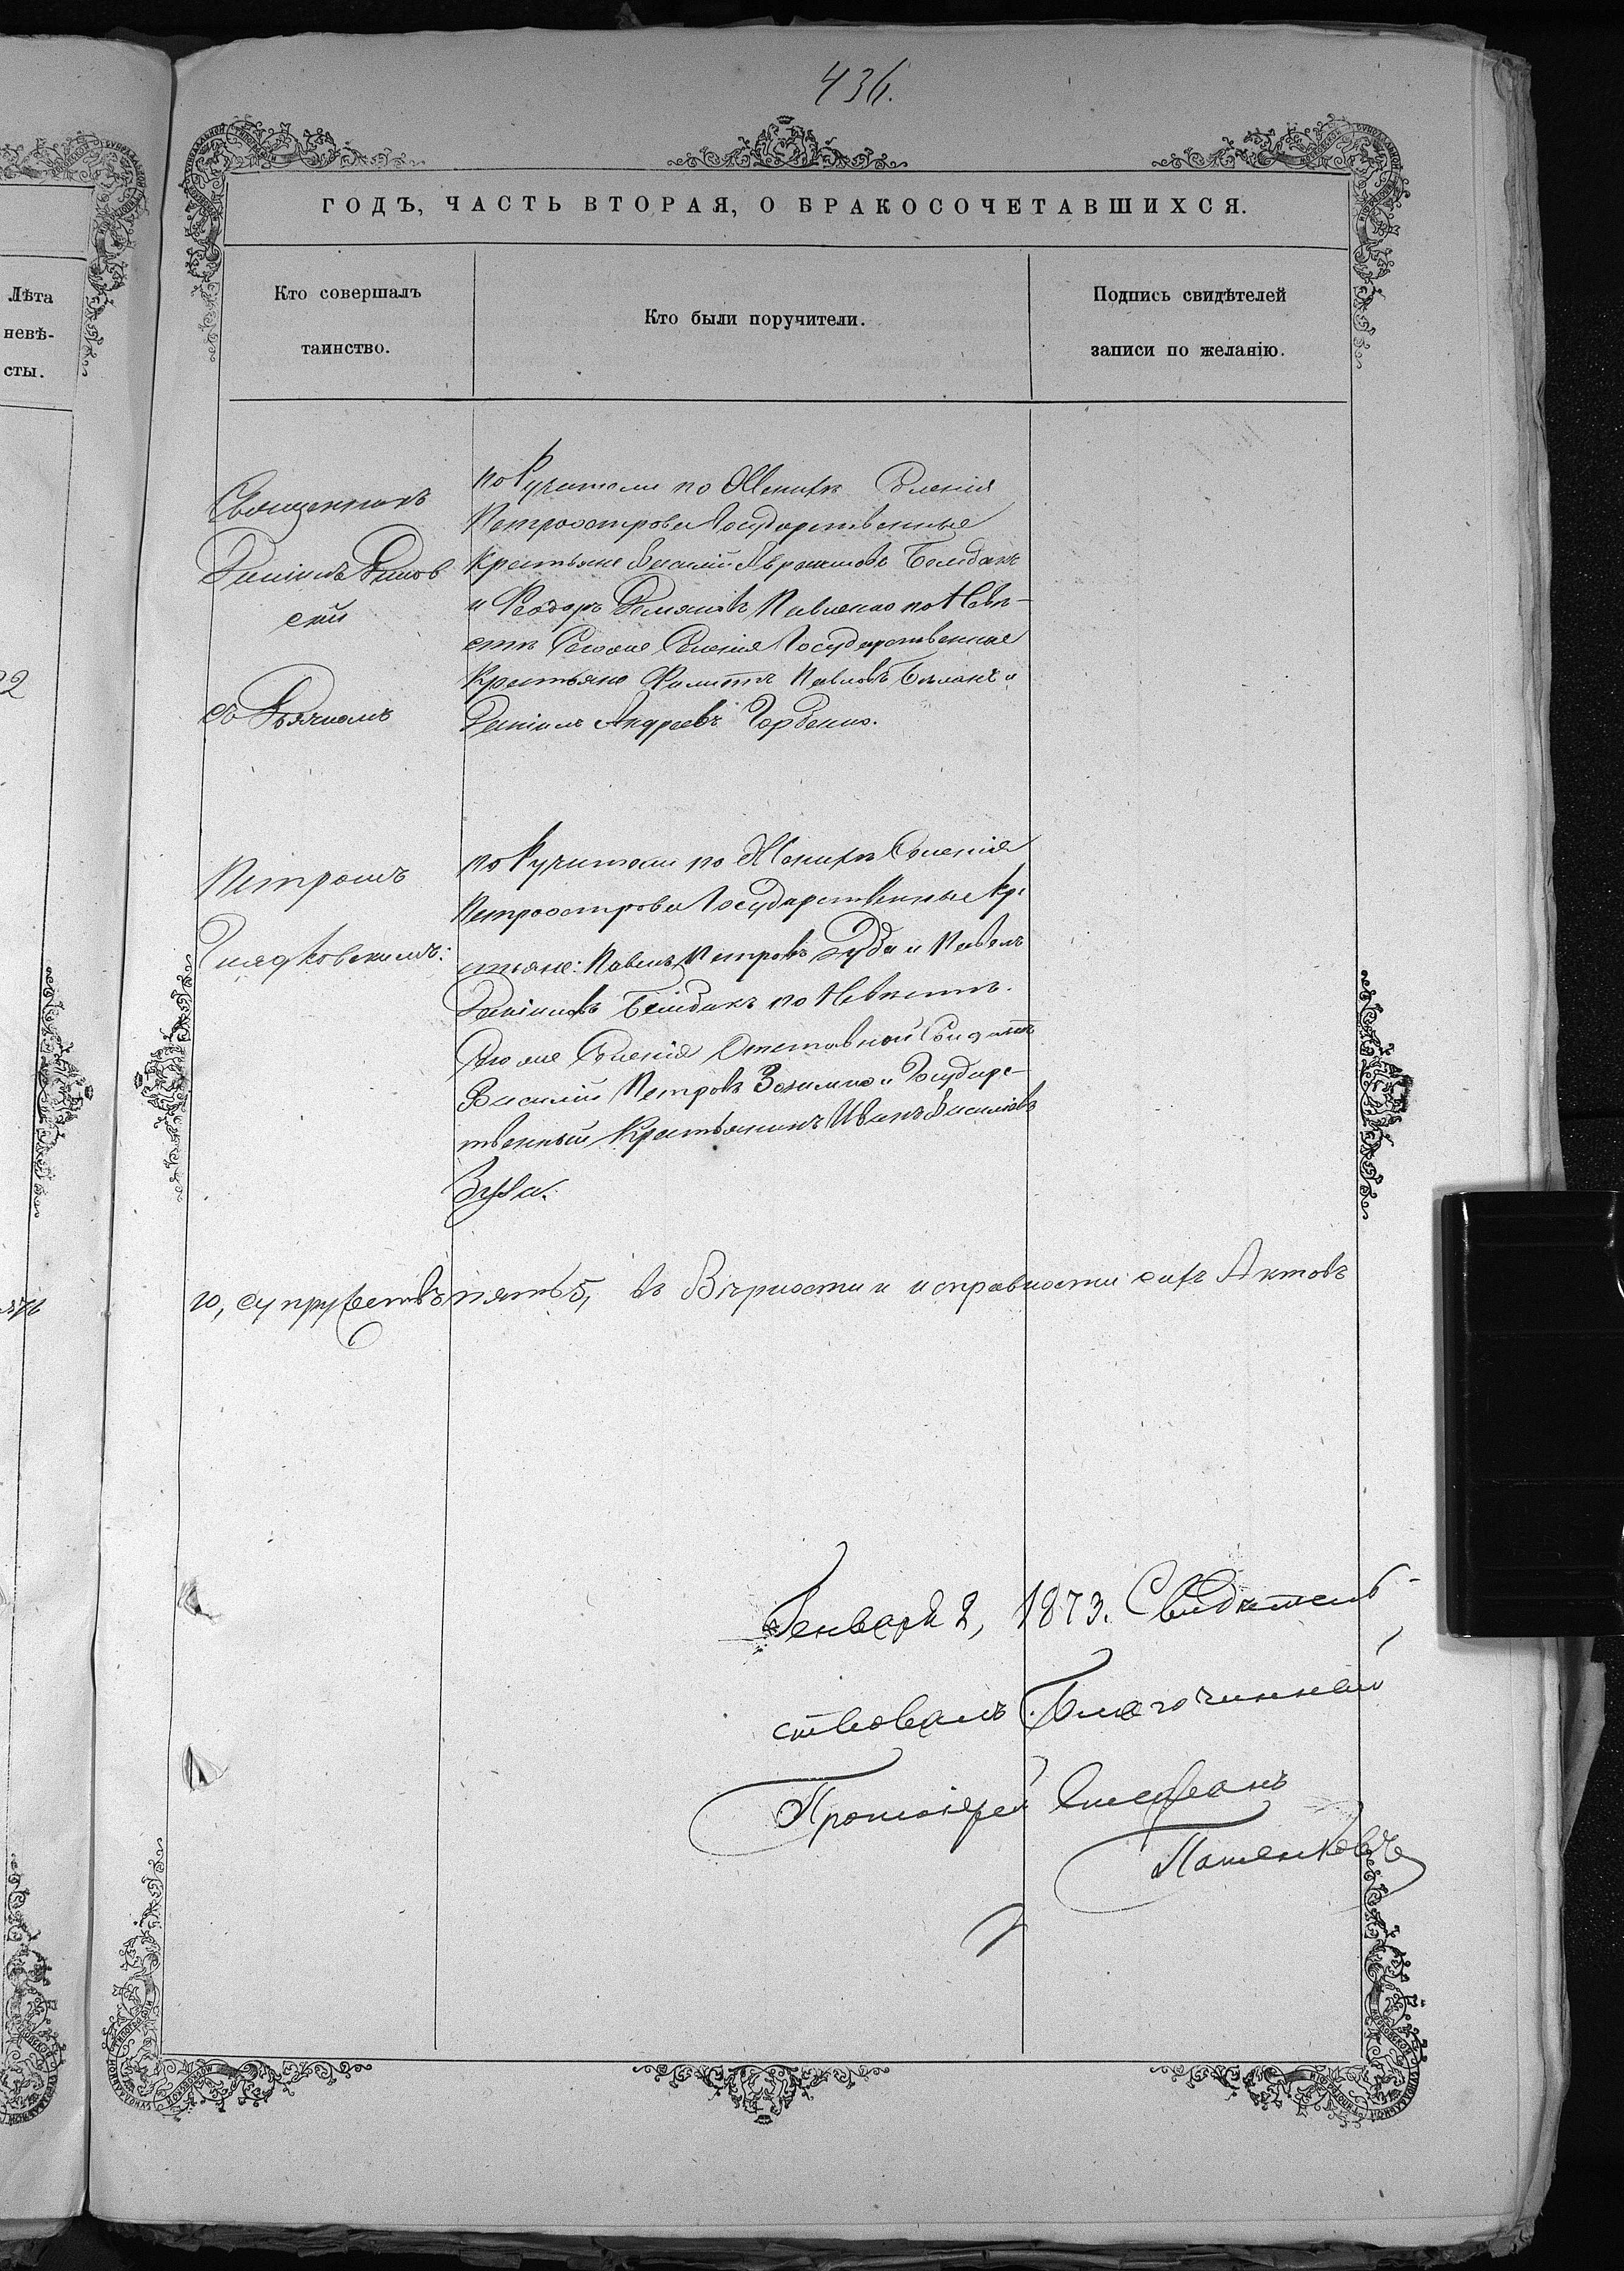 436.
ГОДЪ, ЧАСТЬ ВТОРАЯ, О БРАКОСОЧЕТАВШИХСЯ.
Лѣта
невѣ-
сты.
Кто совершалъ
таинство.
Кто были поручители.
Подпись свидѣтелей
записи по желанію.
22
Священникъ
Даніилъ
скій
съ Дьячкомъ
Петромъ
поручители по Женихѣ Селенія
Петроострова Государственные
Крестьяне Василій Авраамовъ
и Феодоръ Демяновъ Павленко по Невѣ-
стѣ Селенія Государственные
Крестьяне Филиппъ Павловъ и
Даніилъ Андреевъ Горбенко.
поручители по Женихѣ Селенія
Петроострова Государственные Кре
стьяне: Павелъ Петровъ Дуда и Павелъ
Даніиловъ по Невѣстѣ.
Селенія Отставной Солдатъ
Василій Петровъ и Государс-
твенный Крестьянинъ Иванъ Васильевъ
го, супружествъ пять 5, въ Вѣрности и исправности сихъ Актовъ
Генваря 2, 1873. Свидѣтель-
ствовалъ Благочинный
Протоіерей Стефанъ